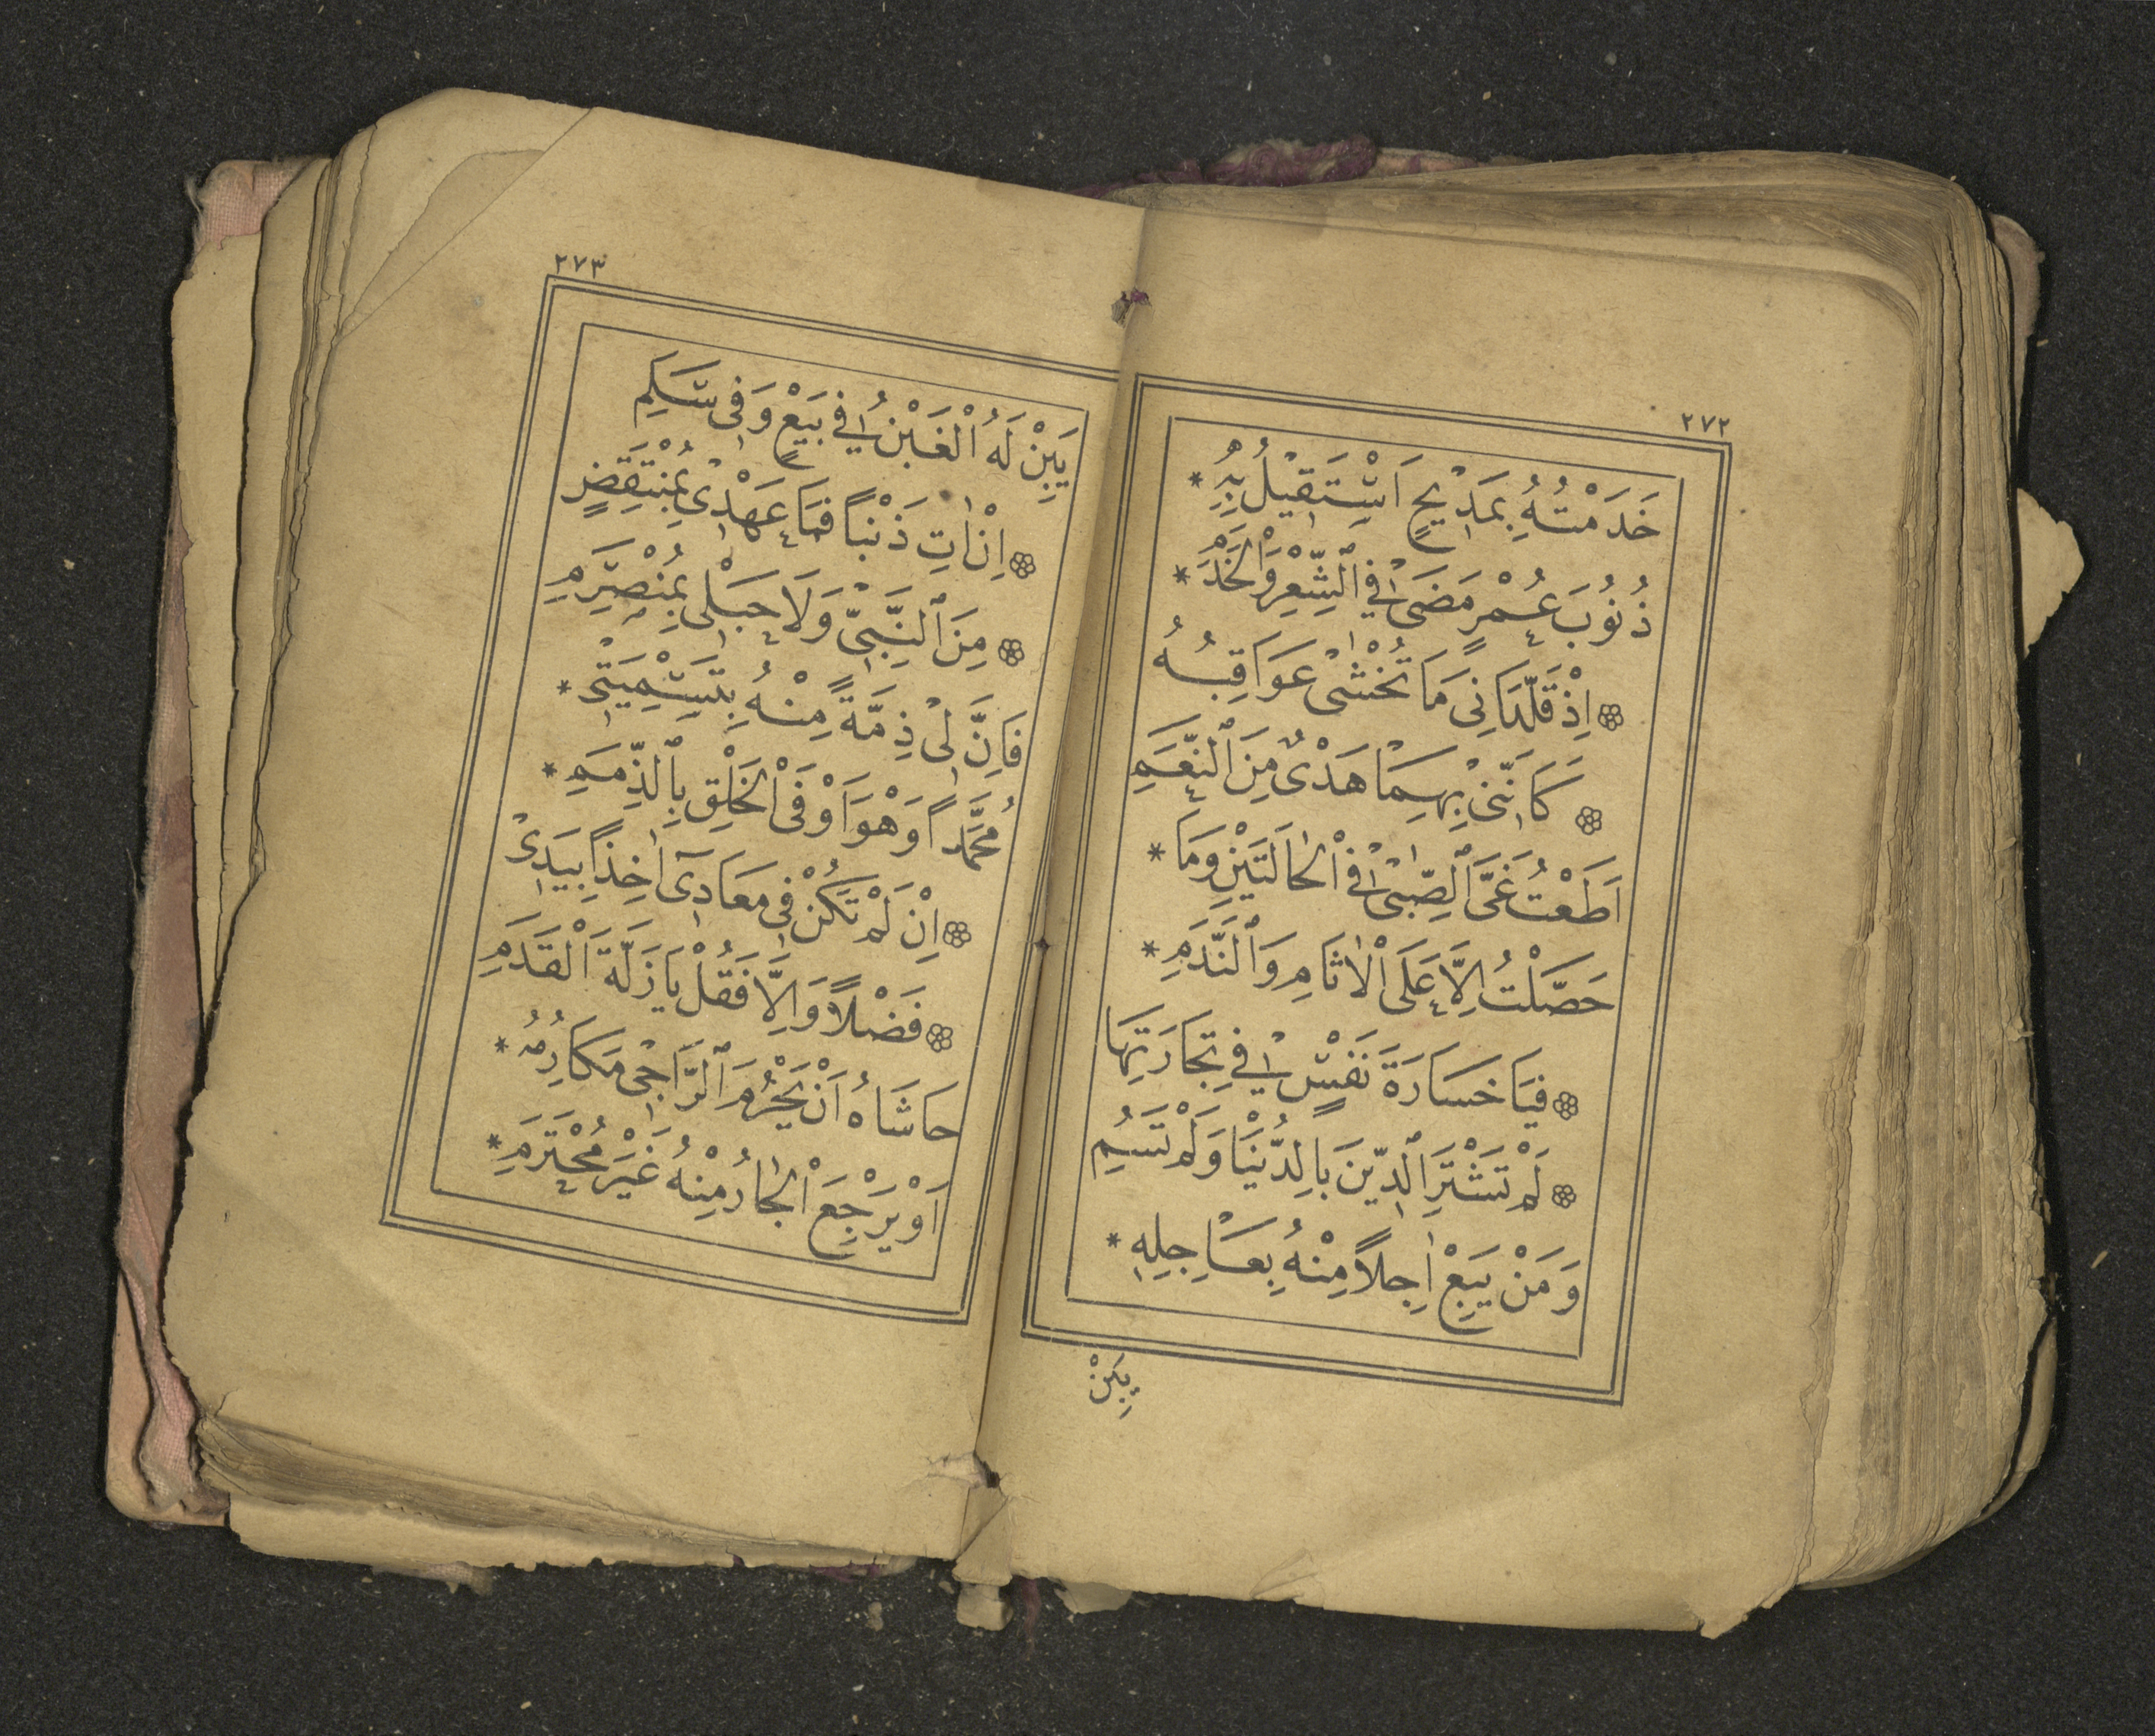 ٢٧٢
خَدَمْتُهُ بِمَدِيْحٍ اَسْتَقِيْلُ بِهِ *
ذُنُوْبَ عُمْرٍ مَضَى فِي الشِّعْرِ وَالْخَدَمِ *
اِذْ قَلَّدَانِيَ مَا تُخْشٰى عَوَاقِبُهُ
كَاَنَّنِيْ بِهِمَا هَدْىٌ مِنَ النَّعَمِ
اَطَعْتُ غَىَّ الصِّبٰى فِي الْحَالَتَيْنِ وَمَا *
حَصَّلْتُ اِلَّا عَلَى الْاٰثَامِ وَالنَّدَمِ *
فَيَا خَسَارَةَ نَفْسٍ فِيْ تِجَارَتِهَا
لَمْ تَشْتَرِ الدِّيْنَ بِالدُّنْيَا وَلَمْ تَسُمِ
وَمَنْ يَبِعْ اٰجِلاً مِنْهُ بِعَاجِلِهِ *
يَبِنْ
٢٧٣
يَبِنْ لَهُ الْغَبْنُ فِيْ بَيْعٍ وَفِيْ سَلَمِ
اِنْ اٰتِ ذَنْبًا فَمَا عَهْدِيْ بِمُنْتَقِضٍ
مِنَ النَّبِيِّ وَلَا حَبْلِيْ بِمُنْصَرِمِ
فَاِنَّ لِيْ ذِمَّةً مِنْهُ بِتَسْمِيَتِيْ *
مُحَمَّداً وَهْوَ اَوْفَى الْخَلْقِ بِالذِّمَمِ *
اِنْ لَمْ تَكُنْ فِيْ مَعَادِيْ اٰخِذًا بِيَدِيْ
فَضْلاً وَاِلَّا فَقُلْ يَا زَلَّةَ الْقَدَمِ
حَاشَاهُ اَنْ يَحْرُمَ الرَّاجِيْ مَكَارِمَهُ *
اَوْ يَرْجِعَ الْجَارُ مِنْهُ غَيْرَ مُحْتَرَمِ *